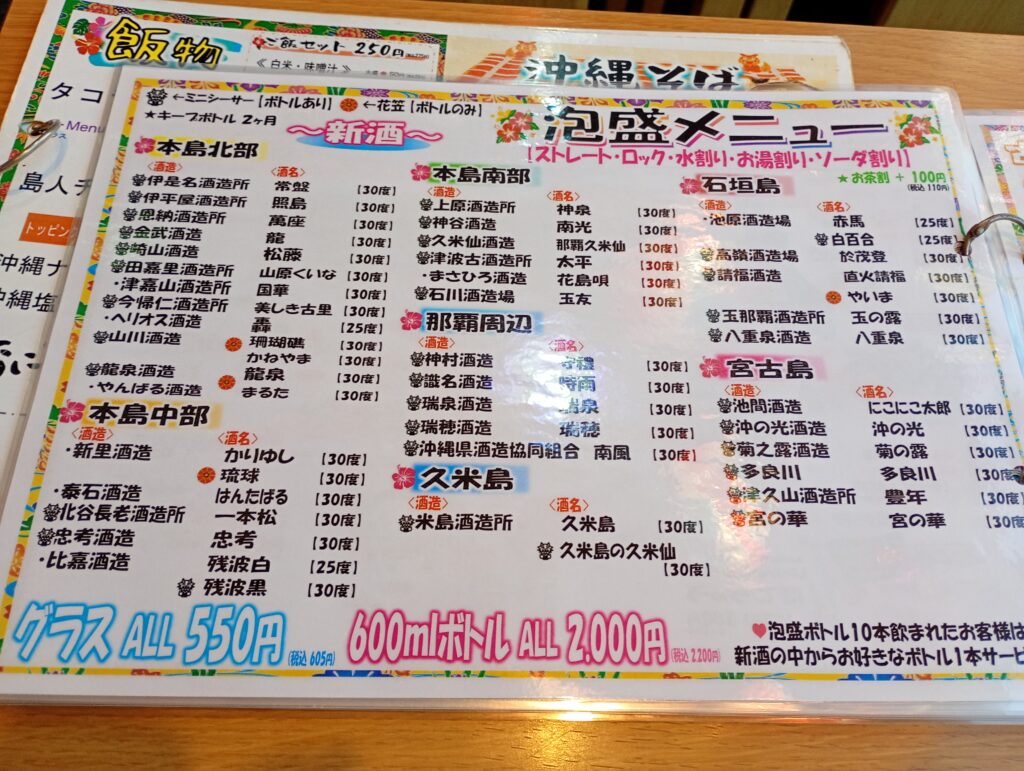 飯物
ご飯セット 250円
《白米・味噌汁》
沖縄そば
タコ
Menu
島人チ
トッピン
沖縄ナ
沖縄塩
←ミニシーサー【ボトルあり】 ←花笠【ボトルのみ】
★キープボトル 2ヶ月
～新酒～
泡盛メニュー
【ストレート・ロック・水割り・お湯割り・ソーダ割り】
★お茶割 + 100円
(税込 110円)
本島北部
〈酒造〉 〈酒名〉
伊是名酒造所 常盤 【30度】
伊平屋酒造所 照島 【30度】
恩納酒造所 萬座 【30度】
金武酒造 龍 【30度】
崎山酒造 松藤 【30度】
田嘉里酒造所 山原くいな 【30度】
・津嘉山酒造所 国華 【30度】
今帰仁酒造所 美しき古里 【30度】
・ヘリオス酒造 轟 【25度】
山川酒造 珊瑚礁 【30度】
かねやま 【30度】
龍泉酒造 龍泉 【30度】
・やんばる酒造 まるた 【30度】
本島中部
〈酒造〉 〈酒名〉
・新里酒造 かりゆし 【30度】
琉球 【30度】
・泰石酒造 はんたばる 【30度】
北谷長老酒造所 一本松 【30度】
忠孝酒造 忠孝 【30度】
・比嘉酒造 残波白 【25度】
残波黒 【30度】
本島南部
〈酒造〉 〈酒名〉
上原酒造所 神泉 【30度】
神谷酒造 南光 【30度】
久米仙酒造 那覇久米仙 【30度】
津波古酒造所 太平 【30度】
・まさひろ酒造 花島唄 【30度】
石川酒造場 玉友 【30度】
那覇周辺
〈酒造〉 〈酒名〉
神村酒造 守禮 【30度】
識名酒造 時雨 【30度】
瑞泉酒造 瑞泉 【30度】
瑞穂酒造 瑞穂 【30度】
沖縄県酒造協同組合 南風 【30度】
久米島
〈酒造〉 〈酒名〉
米島酒造所 久米島 【30度】
久米島の久米仙
【30度】
石垣島
〈酒造〉 〈酒名〉
・池原酒造場 赤馬 【25度】
白百合 【25度】
高嶺酒造場 於茂登 【30度】
請福酒造 直火請福 【30度】
やいま 【30度】
玉那覇酒造所 玉の露 【30度】
八重泉酒造 八重泉 【30度】
宮古島
〈酒造〉 〈酒名〉
池間酒造 にこにこ太郎 【30度】
沖の光酒造 沖の光 【30度】
菊之露酒造 菊の露 【30度】
多良川 多良川 【30度】
津久山酒造所 豊年 【30度】
宮の華 宮の華 【30度】
グラス ALL 550円 (税込 605円)
600mlボトル ALL 2,000円 (税込 2,200円)
♥泡盛ボトル10本飲まれたお客様は
新酒の中からお好きなボトル1本サービ